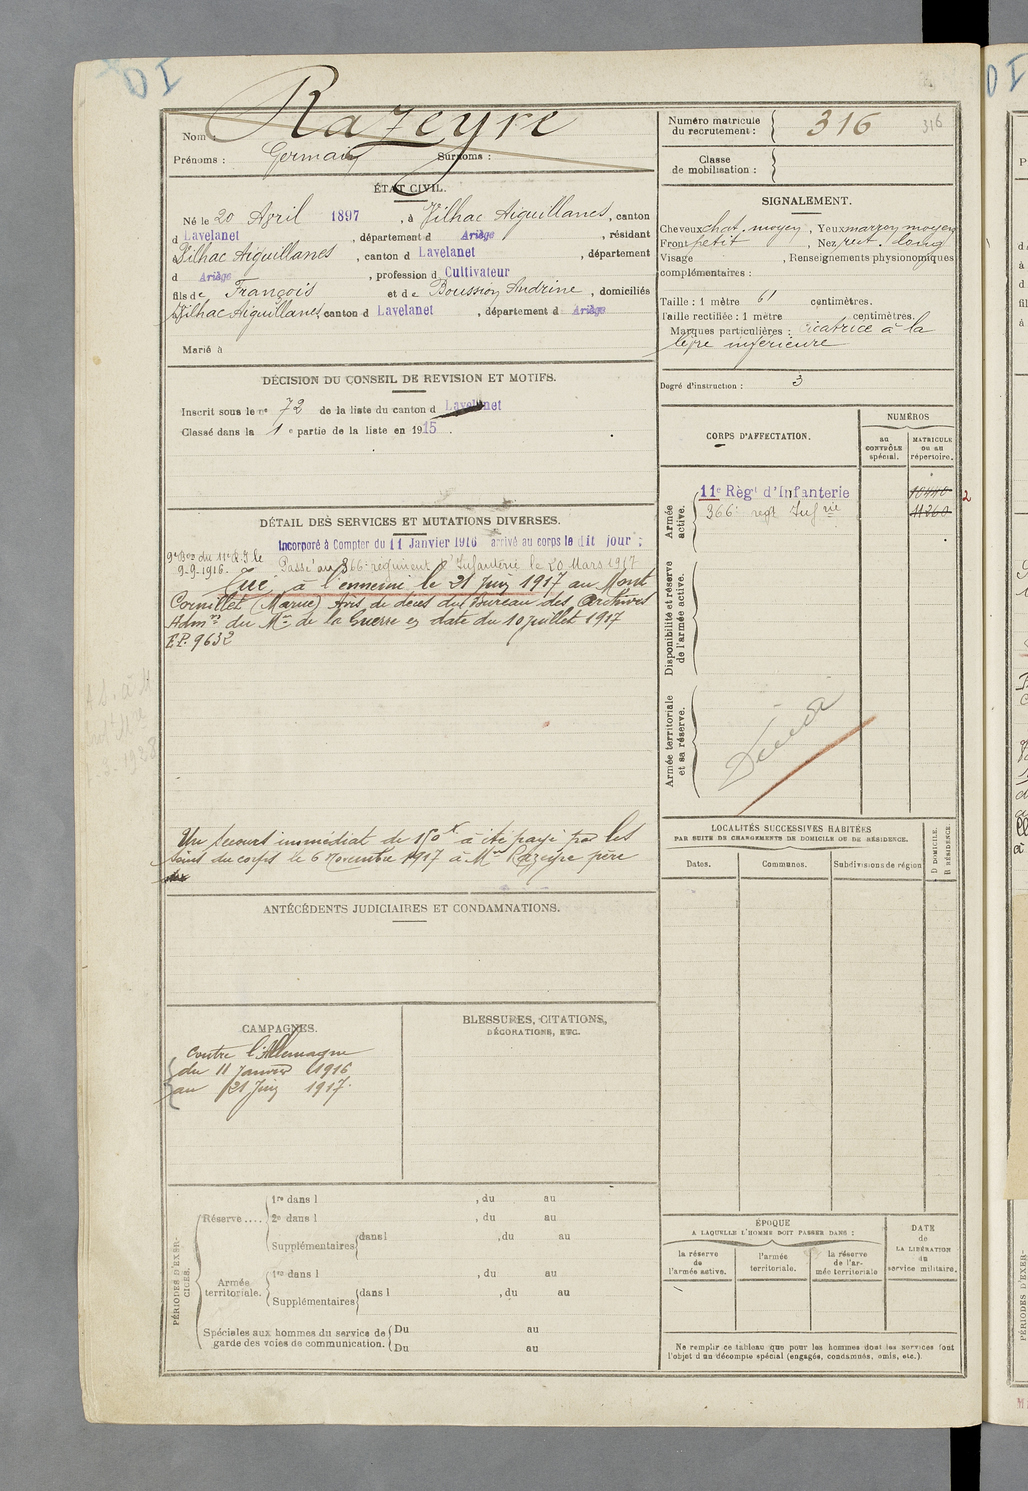 Razeyre
Nom :
Prénoms : Germain Surnoms :
Numéro matricule du recrutement : 316 316
Classe de mobilisation :
ÉTAT CIVIL.
Né le 20 Avril 1897, à Vilhac Aiguillanes, canton
d Lavelanet, département d Ariège, résidant
Vilhac Aiguillanes, canton d Lavelanet, département
d Ariège, profession d Cultivateur
fils de François et de Boussion Andrine, domiciliés
Vilhac Aiguillanes, canton d Lavelanet, département d Ariège
Marié à
SIGNALEMENT.
Cheveux chat. moyen, Yeux marron moyen
Front petit, Nez rect. long
Visage , Renseignements physionomiques
complémentaires :
Taille : 1 mètre 61 centimètres.
Taille rectifiée : 1 mètre centimètres.
Marques particulières : cicatrice à la
lèvre inférieure
Degré d'instruction : 3
DÉCISION DU CONSEIL DE REVISION ET MOTIFS.
Inscrit sous le n° 72 de la liste du canton d Lavelanet
Classé dans la 1e partie de la liste en 1915.
CORPS D'AFFECTATION.
NUMÉROS
au CONTRÔLE spécial.
MATRICULE OU AU répertoire.
Armée active.
11e Régt d'Infanterie 10440 2
366e regt Infrie 11260
Disponibilité et réserve de l'armée active.
Armée territoriale et sa réserve.
Décédé
DÉTAIL DES SERVICES ET MUTATIONS DIVERSES.
Incorporé à Compter du 11 Janvier 1916 arrivé au corps le dit jour ;
9e Bon du 11e R.I. le
9-9-1916. Passé au 366e régiment d'Infanterie le 20 Mars 1917
Tué à l'ennemi le 21 Juin 1917 au Mont
Cornillet (Marne) Avis de décès du Bureau des Archives
Admves du Mre de la Guerre en date du 10 juillet 1917
E.P. 9632
Un secours immédiat de 150f a été payé par les
soins du corps le 6 Novembre 1917 à Mr Razeyre père
ANTÉCÉDENTS JUDICIAIRES ET CONDAMNATIONS.
LOCALITÉS SUCCESSIVES HABITÉES
PAR SUITE DE CHANGEMENTS DE DOMICILE OU DE RÉSIDENCE.
Dates. Communes. Subdivisions de région
D DOMICILE.
R RÉSIDENCE.
CAMPAGNES.
contre l'Allemagne
du 11 Janvier 1916
au 21 Juin 1917.
BLESSURES, CITATIONS,
DÉCORATIONS, ETC.
PÉRIODES D'EXERCICES.
Réserve....
1re dans l , du au
2e dans l , du au
Supplémentaires dans l , du au
Armée territoriale.
1re dans l , du au
Supplémentaires dans l , du au
Spéciales aux hommes du service de
garde des voies de communication.
Du au
Du au
ÉPOQUE
A LAQUELLE L'HOMME DOIT PASSER DANS :
la réserve de l'armée active.
l'armée territoriale.
la réserve de l'armée territoriale
DATE de LA LIBÉRATION du service militaire.
Ne remplir ce tableau que pour les hommes dont les services font
l'objet d'un décompte spécial (engagés, condamnés, omis, etc.).